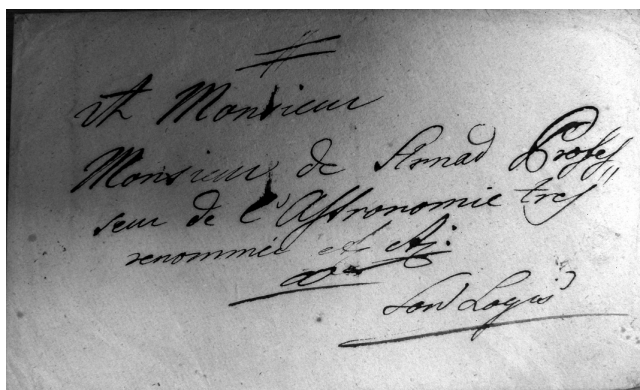 A Monsieur
Monsieur de Strnad Profes
seur de l'Astronomie tres"
renommée
a
Son Logis